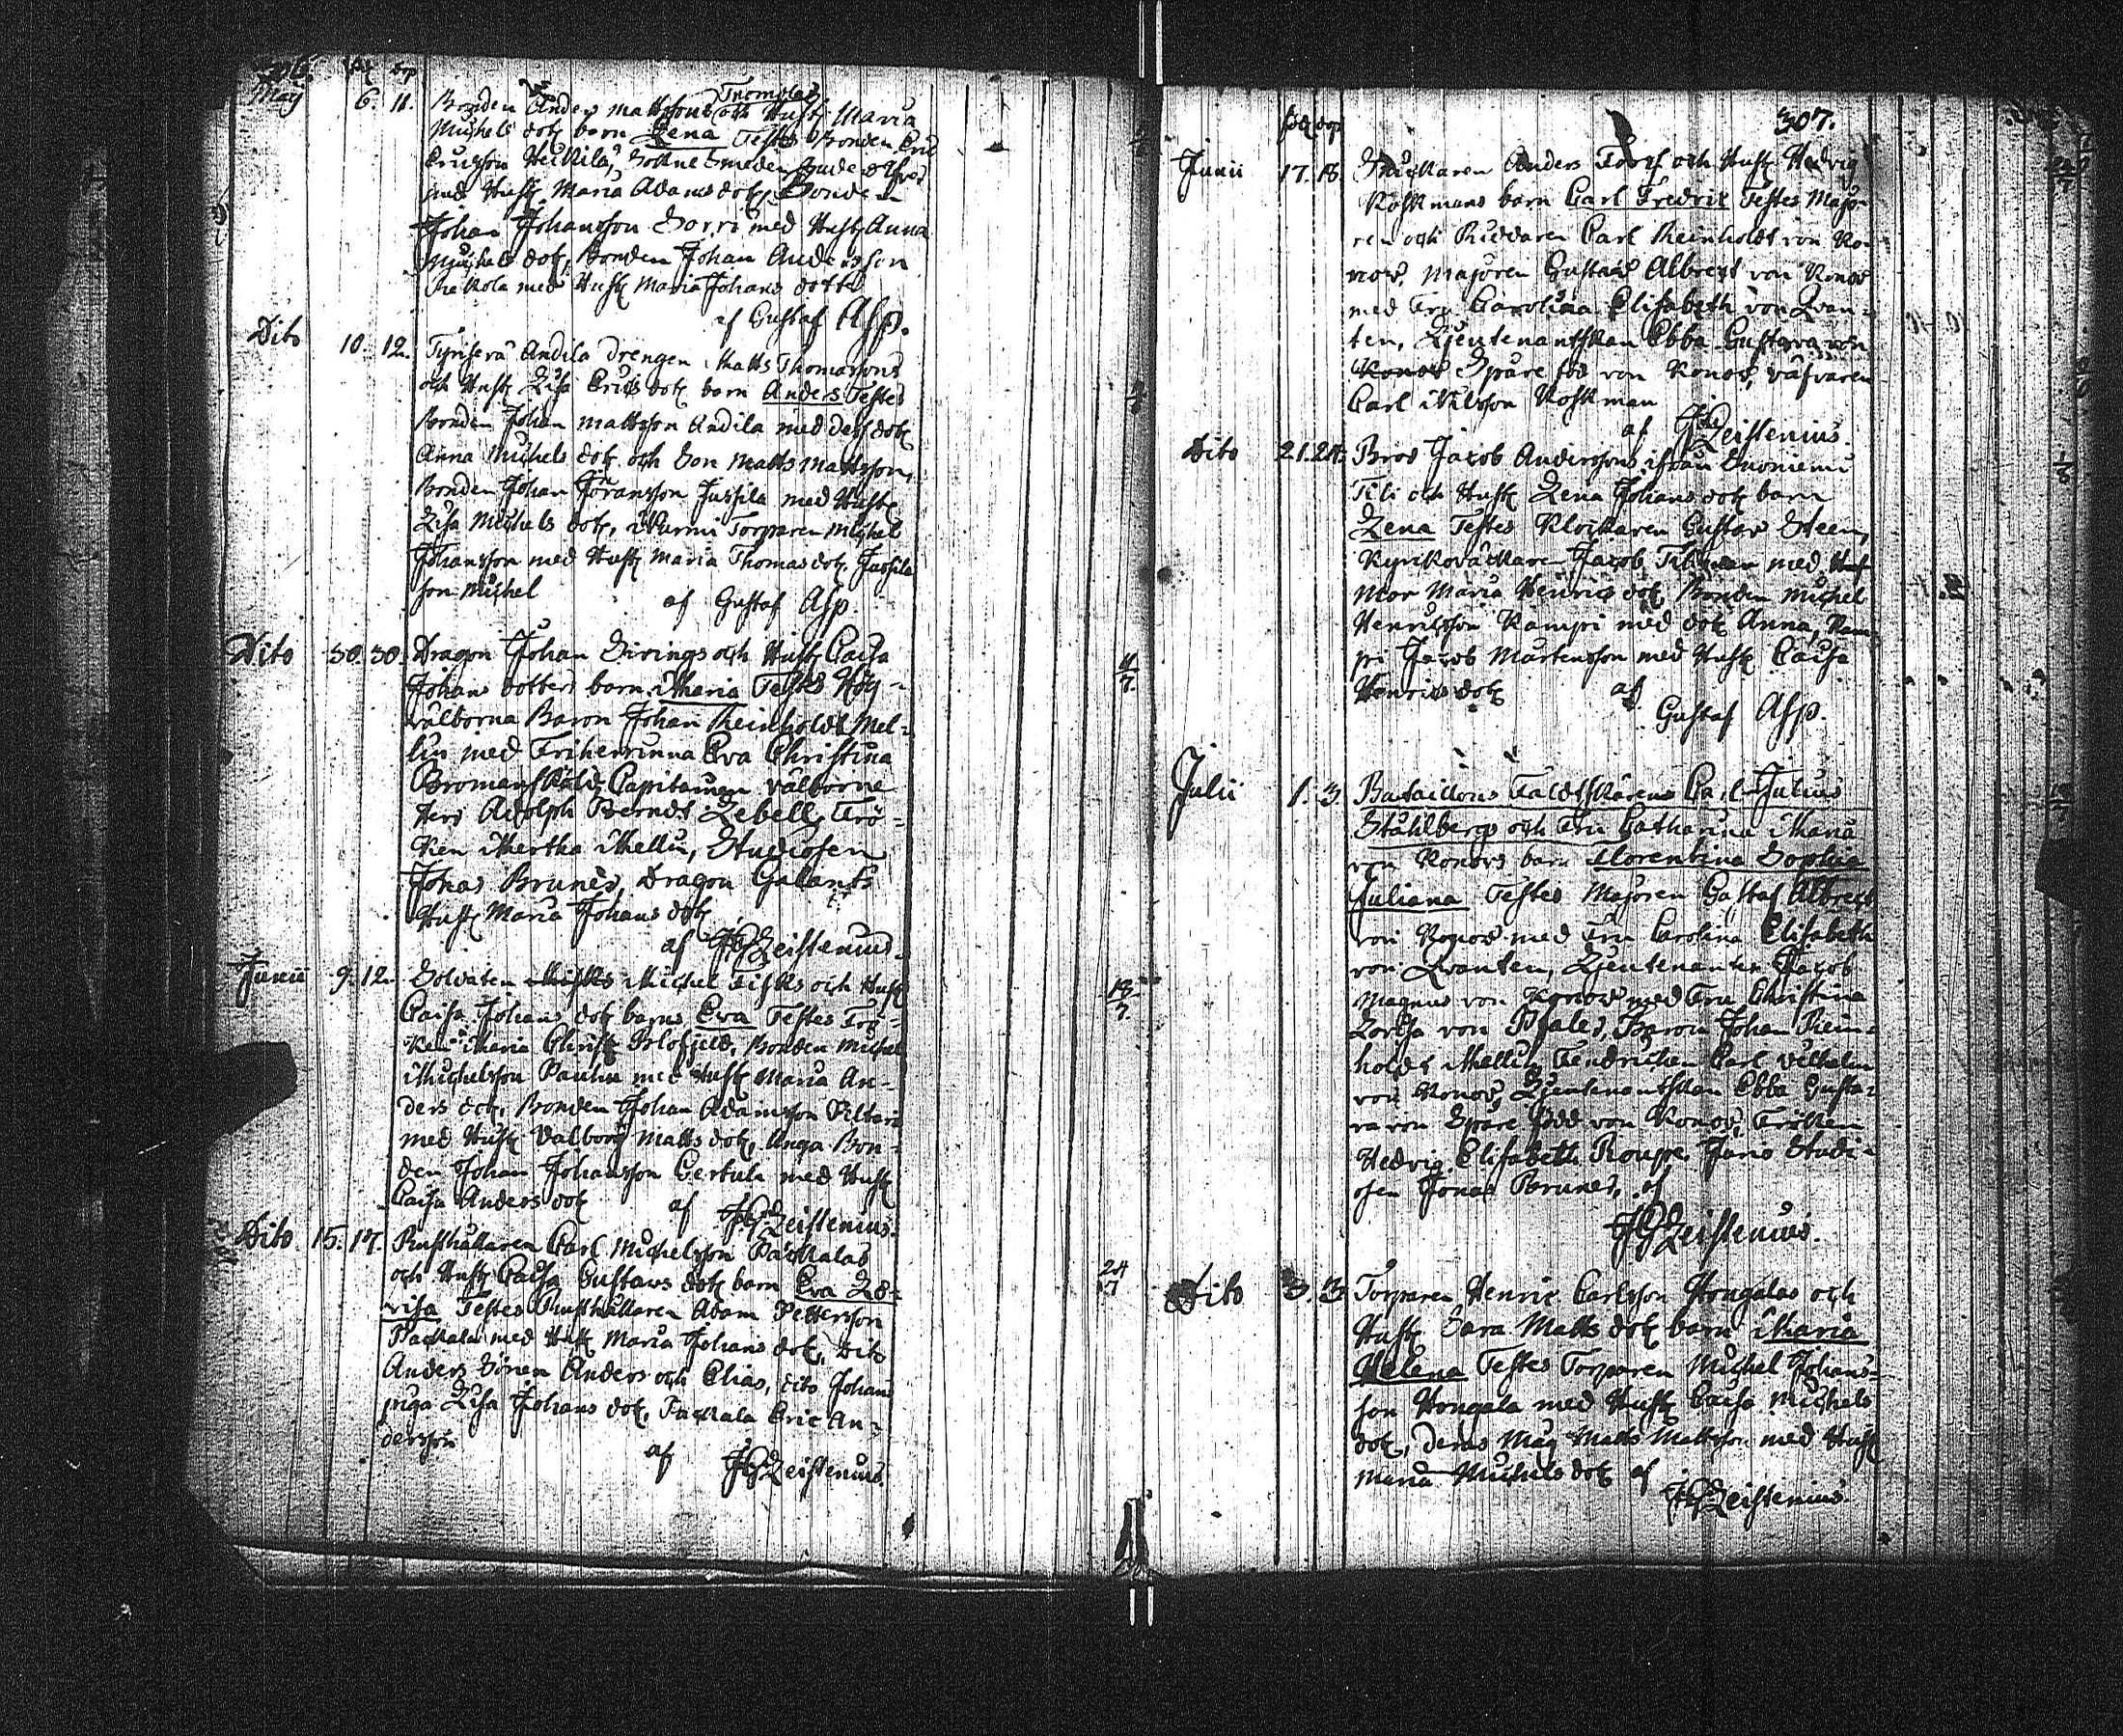 306.
föd döp
May 6. 11. Bonden Anders Mattssons Trompas och Hust: Maria
Michels dot: barn Lena Testes Bonden Eric
Ericsson Heikila, Sokne Smeden
med Hust: Maria Adams dot: Bonden
Johan Johansson Sorri med Hust: Anna
Michels dot: Bonden Johan Andersson
med Hust: Maria Johans dotter
af Gustaf Asp.
Dito 10. 12. Andila drengen Matts Thomassons
och Hust: Lisa Erics dot: barn Anders Testes
Bonden Johan Mattsson Andila med dess dot:
Anna Michels dot: och Son Matts Mattsson,
Bonden Johan Jöransson Jussila med Hust:
Lisa Michels dot:, Nurmi Torparen Michel
Johansson med Hust: Maria Thomas dot: Jussila
son Michel af Gustaf Asp.
Dito 30. 30. Dragon Johan Sirings och Hust: Caisa
Johans dotters barn Maria Testes Hög-
välborna Baron Johan Reinholdt Mel-
lin med Friherrinna Eva Christina
Bromanskiöld, Capitainen välborne
Herr Adolph Berndt Zebell, Frö-
ken Mertha Mellin, Studiosen
Jonas Brunér, Dragon Galants
Hust: Maria Johans dot:
af JGZeistenius.
Junii 9. 12. Soldaten Michel Fisks och Hust:
Caisa Johans dot: barn Eva Testes Frö-
ken Maria Christ: Blofjeld, Bonden Michel
Michelsson Pauhu med Hust: Maria An-
ders dot:, Bonden Johan Adamsson Piltari
med Hust: Valborg Matts dot:, Anga Bon-
den Johan Johansson Certula med Hust:
Caisa Anders dot: af JGZeistenius.
Dito 15. 17. Rusthållaren Carl Michelsson Packalas
och Hust: Caisa Gustavs dot: barn Eva Lo-
visa Testes Rusthållaren Adam Pettersson
Packala med Hust: Maria Johans dot:, dito
Anders Sönen Anders och Elias, dito Johans
piga Lisa Johans dot:, Packala Eric An-
dersson
af JGZeistenius.
11/7.
18/7.
24/7
307.
föd döp
Junii 17. 18. Anders Forss och Hust: Hedvig
Koskmans barn Carl Fredric Testes Majo-
ren och Riddaren Carl Reinholdt von Ko-
now, Majoren Gustaf Albrect von Konow
med Fru Carolina Elisabeth von Qvan-
ten, Lieutenantskan Ebba Gustava von
Konow Spåre föd von Konow, väfvaren
Carl Nilsson Koskman
af JGZeistenius.
Dito 21. 24. Bror Jacob Anderssons ifrån Suoniemi
Tili och Hust: Lena Johans dot: barn
Lena Testes Klockaren Gustav Steen,
Kyrkoväcktare Jacob med
mor Maria Henrics dot:, Bonden Michel
Henricsson Kampri med dot: Anna, Kam-
pri Jacob Mårtensson med Hust: Caisa
Henrics dot: af
Gustaf Asp.
Julii 1. 3. Bataillons Faldtskärens Carl Julius
Ståhlbergs och Fru Catharina Maria
von Konovs barn Florentina Sophia
Juliana Testes Majoren Gustaf Albrect
von Konow med Fru Carolina Elisabeth
von Qvanten, Lieutenanten Jacob
Magnus von Konow med Fru Christina
Lovisa von Pfaler, Baron Johan Rein-
holdt Mellin, Fendricken Carl Vilhelm
von Konow, Lieutenantskan Ebba Gusta-
va von Spåre född von Konow, Fröken
Hedvig Elisabeth Roupe, Juris Studi-
osen Jonas Bruner, af
JGZeistenius.
Dito 3. 3. Torparen Henric Carlsson Hongalas och
Hust: Sara Matts dot: barn Maria
Helena Testes Torparen Michel Johans-
son Hongala med Hust: Caisa Michels
dot:, deras Måg Matts Mattsson med Hust:
Maria Michels dot: af
JGZeistenius.